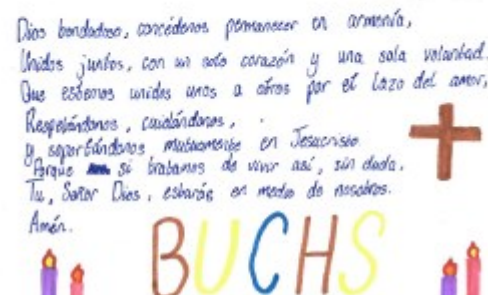 Dios bondadoso, concédenos permanecer en armonía,
Unidos juntos, con un solo corazón y una sola voluntad.
Que estemos unidos unos a otros por el lazo del amor,
Respetándonos, cuidándonos,
y soportándonos mutuamente en Jesucristo
Porque si tratamos de vivir así, sin duda,
Tu, Señor Dios, estarás en medio de nosotros.
Amén.
BUCHS